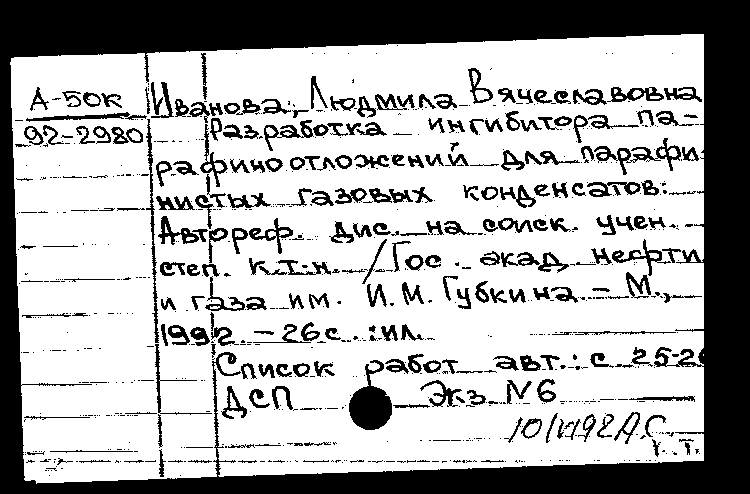 А-50к
92-2980
Иванова, Людмила Вячеславовна
Разработка ингибитора па-
рафиноотложений для парафи
нистых газовых конденсатов:
Автореф. дис. на соиск. учен.
степ. к.т.н. /Гос. акад. нефти
и газа им. И.М.Губкина. - М.,
1992. - 26с. :ил.
Список работ авт.: с 25-26
ДСП Экз. №6
А.С.